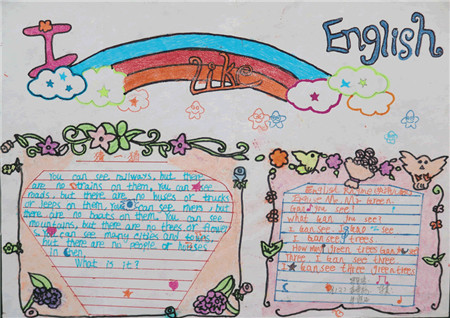 I
Like
English
猜一猜
You can see railways, but ther
are no trains on them, You can see
roads, but there are no buses or trucks
or jeeps on them, You can see rivers, but
there are no boats on them. You can see
mountains, but there are no trees or flower
can see many cities and towns
but there are no people or houses
in them.
What is it?
English
Me, Mr Green.
see?
What can you see?
I can see
I can see trees.
How many green trees can see
Three I can see three
I can see three green trees